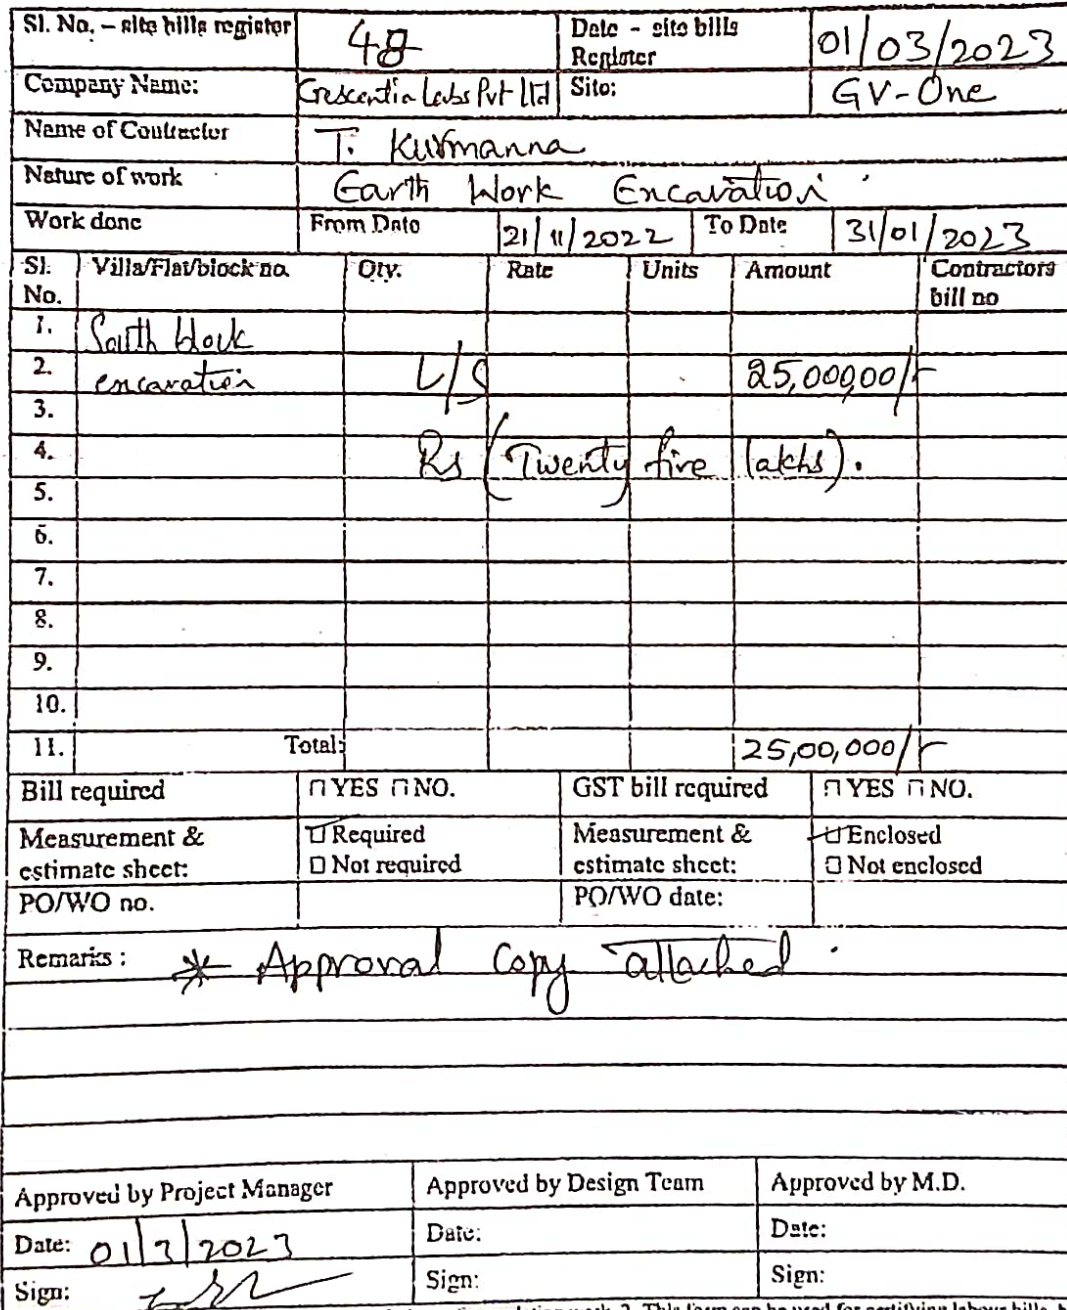 Sl. No. – site bills register 48 Date - site bills Register 01/03/2023
Company Name: Crescentia Labs Pvt Ltd Site: GV-One
Name of Contractor T. Kurmanna
Nature of work Earth Work Encavation
Work done From Date 21/11/2022 To Date 31/01/2023
Sl. No. Villa/Flat/block no. Qty. Rate Units Amount Contractors bill no
1. South block
2. encavation L/S 25,000,00/-
3.
4. Rs (Twenty five lakhs).
5.
6.
7.
8.
9.
10.
11. Total: 25,00,000/-
Bill required YES NO. GST bill required YES NO.
Measurement & estimate sheet: Required Not required Measurement & estimate sheet: Enclosed Not enclosed
PO/WO no. PO/WO date:
Remarks : * Approval Copy attached
Approved by Project Manager Approved by Design Team Approved by M.D.
Date: 01/3/2023 Date: Date:
Sign: Sign: Sign:
2. This form can be used for certifying labour bills